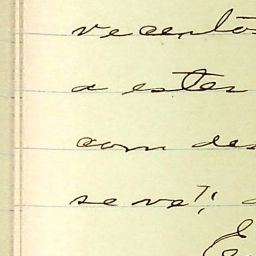 vecentos
a ester
com des
se ve?;
E